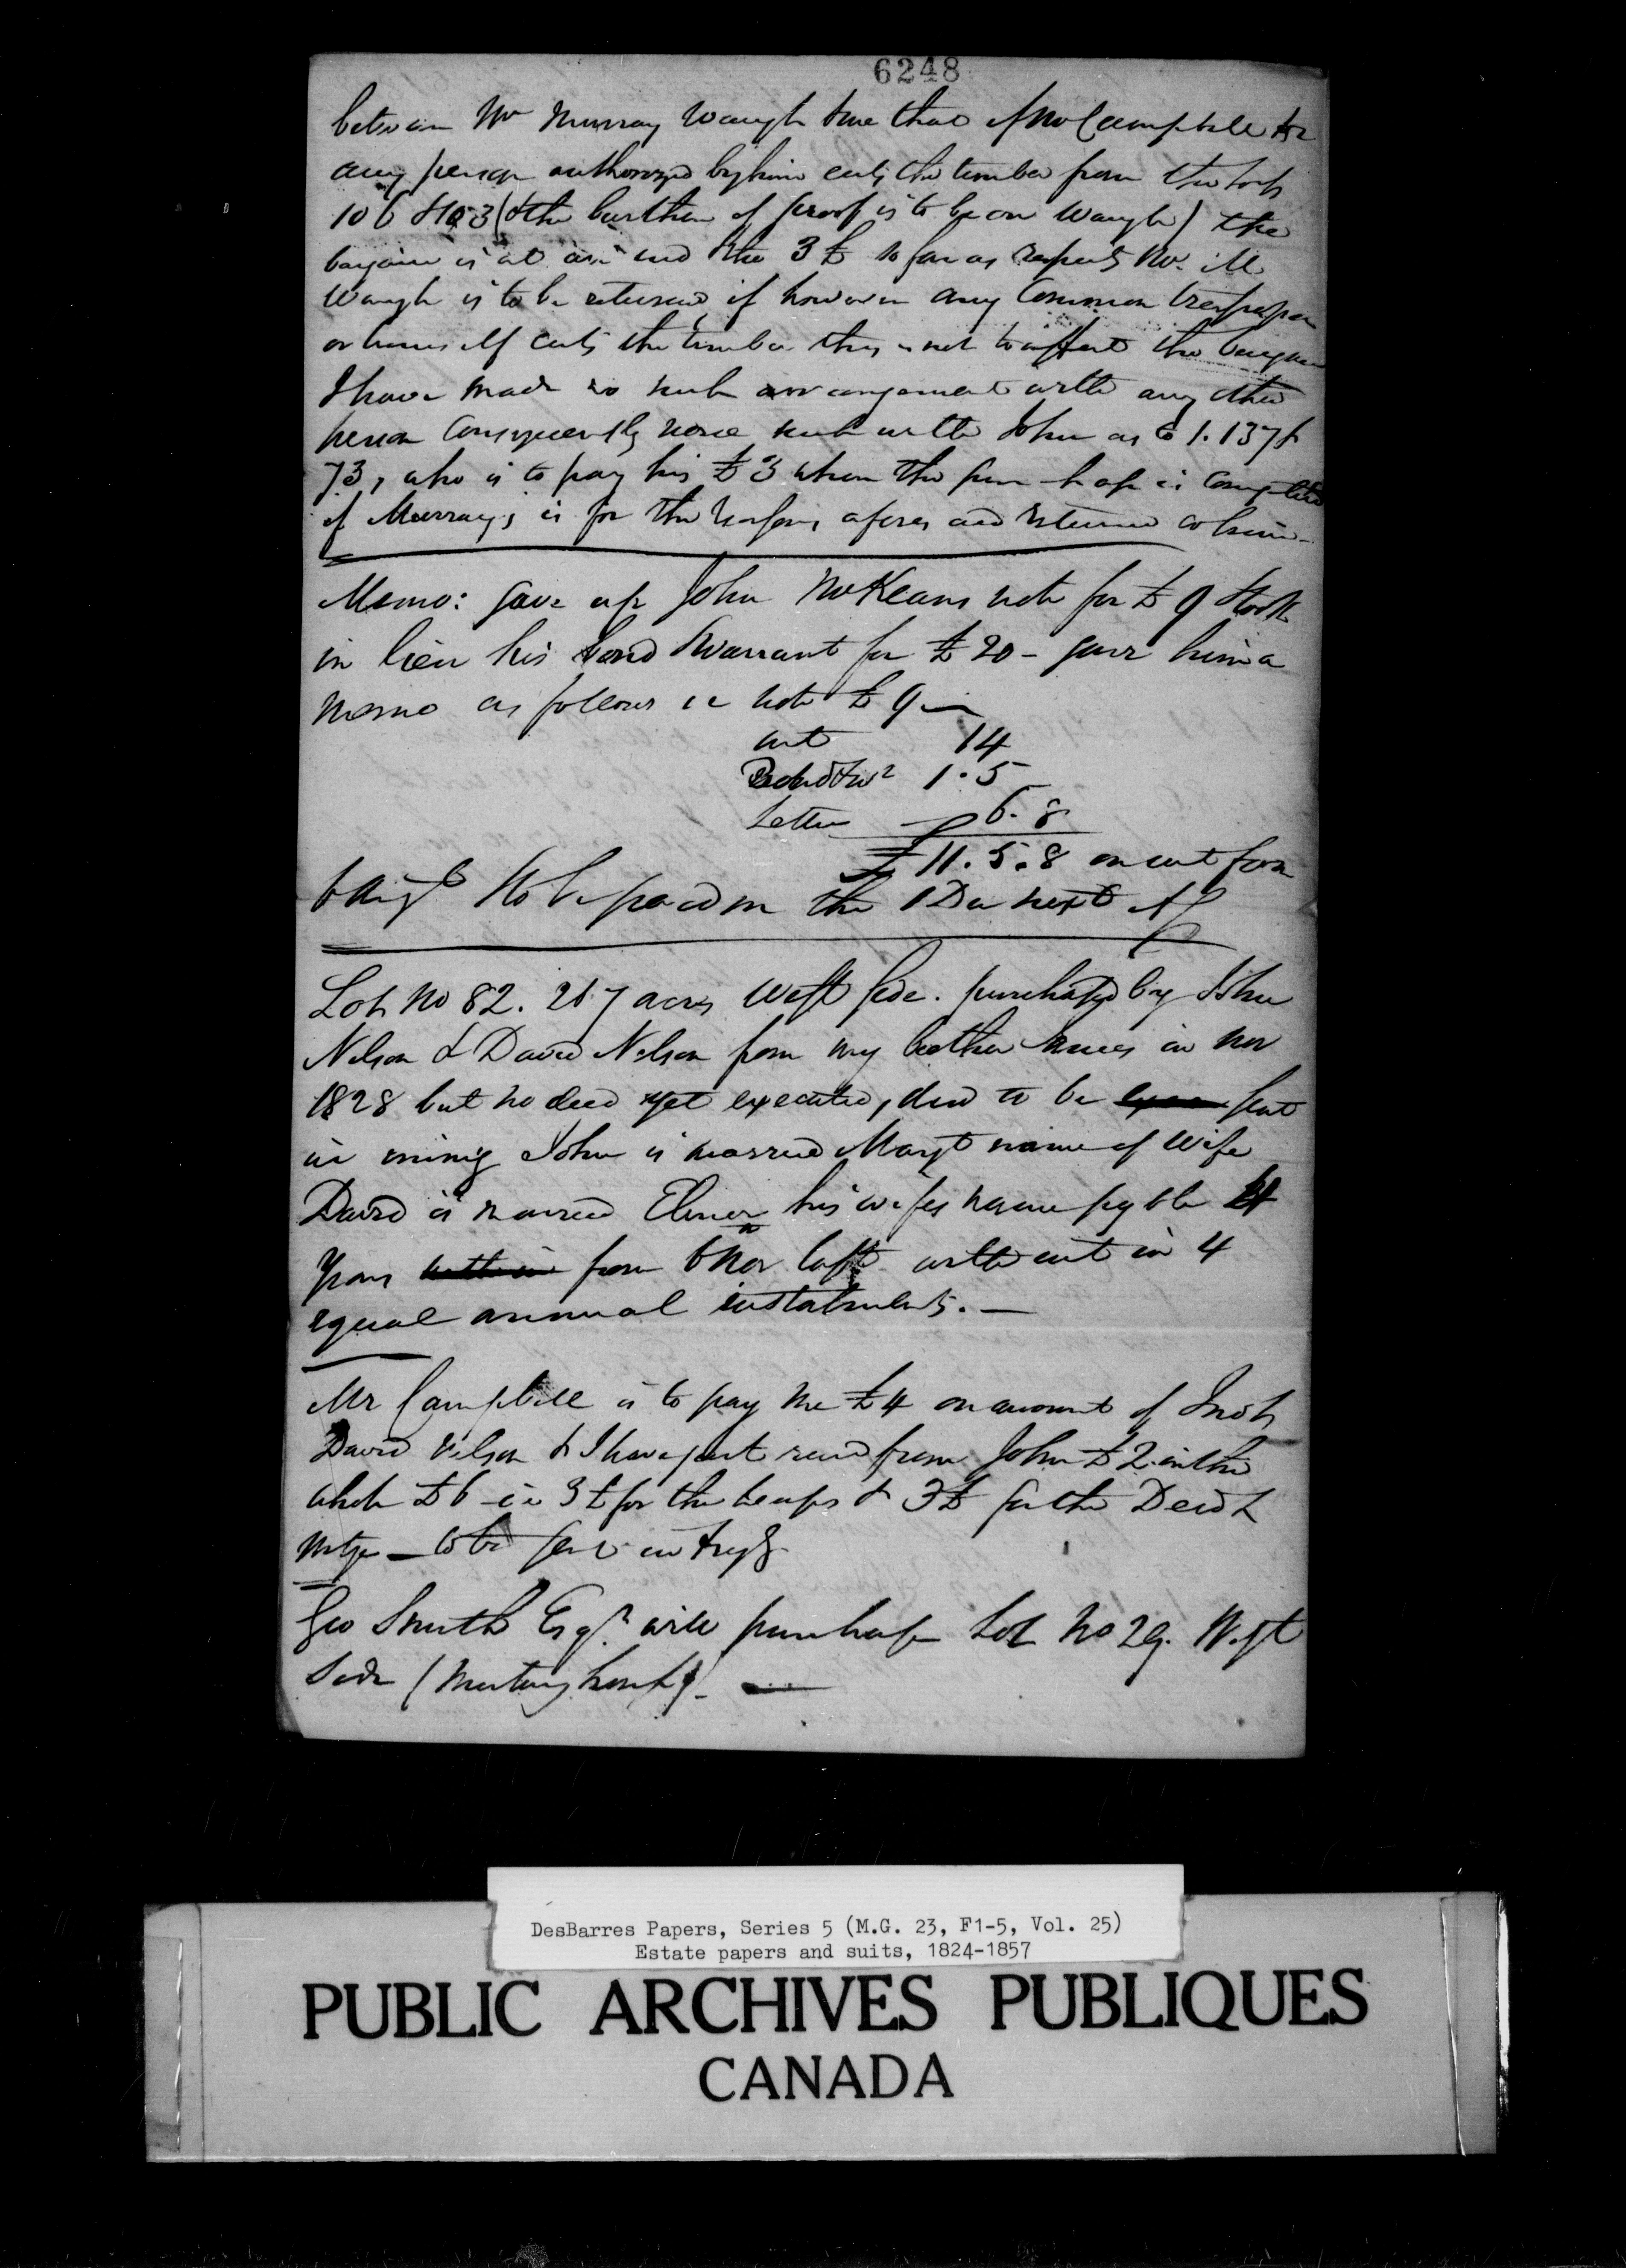 6248
between Mr Murray Waugh & me that if Mr Campbell or
any person authorized by him cuts the timber from the lots
106 & 103 (& the burthen of proof is to be on Waugh) the
bargain is at an end & the 3 £ so far as respects Mr. M.
Waugh is to be returned, if however any Common trespasser
or himself cuts the timber this is not to affect the bargain
I have made no such arrangement with any other
person Consequently none such with John as to 1. 137 &
73, who is to pay his £3 when the purchase is completed
if Murrays is for the reasons afores aid returned to him -
Memo: gave up John McKeans note for £9 & took
in lieu his bond & warrant for £20 - gave him a
memo as follows i e note £9 —
int 14
Bond & wt 1.5
Letter 6.8
£11.5.8 on int from
to be paid on the 1 Dec next
Lot no 82. 267 acres West side. purchased by John
Nelson & David Nelson from my brother James in Nov
1828 but no deed yet executed, deed to be sent
in mine John is married Margt name of wife
David is married Elinor his wifes name payble 4
years from 6 Nov last with int in 4
equal annual instalments. —
Mr Campbell is to pay me £4 on account of
David Nelson & I have just recd from John £2 in the
whole £6 - i e 3 £ for the & 3 £ for the Deed &
Mtge — to be sent
Geo Smith Esqr will purchase Lot No 29. West
Side (Meeting house) —
DesBarres Papers, Series 5 (M.G. 23, F1-5, Vol. 25)
Estate papers and suits, 1824-1857
PUBLIC ARCHIVES PUBLIQUES
CANADA